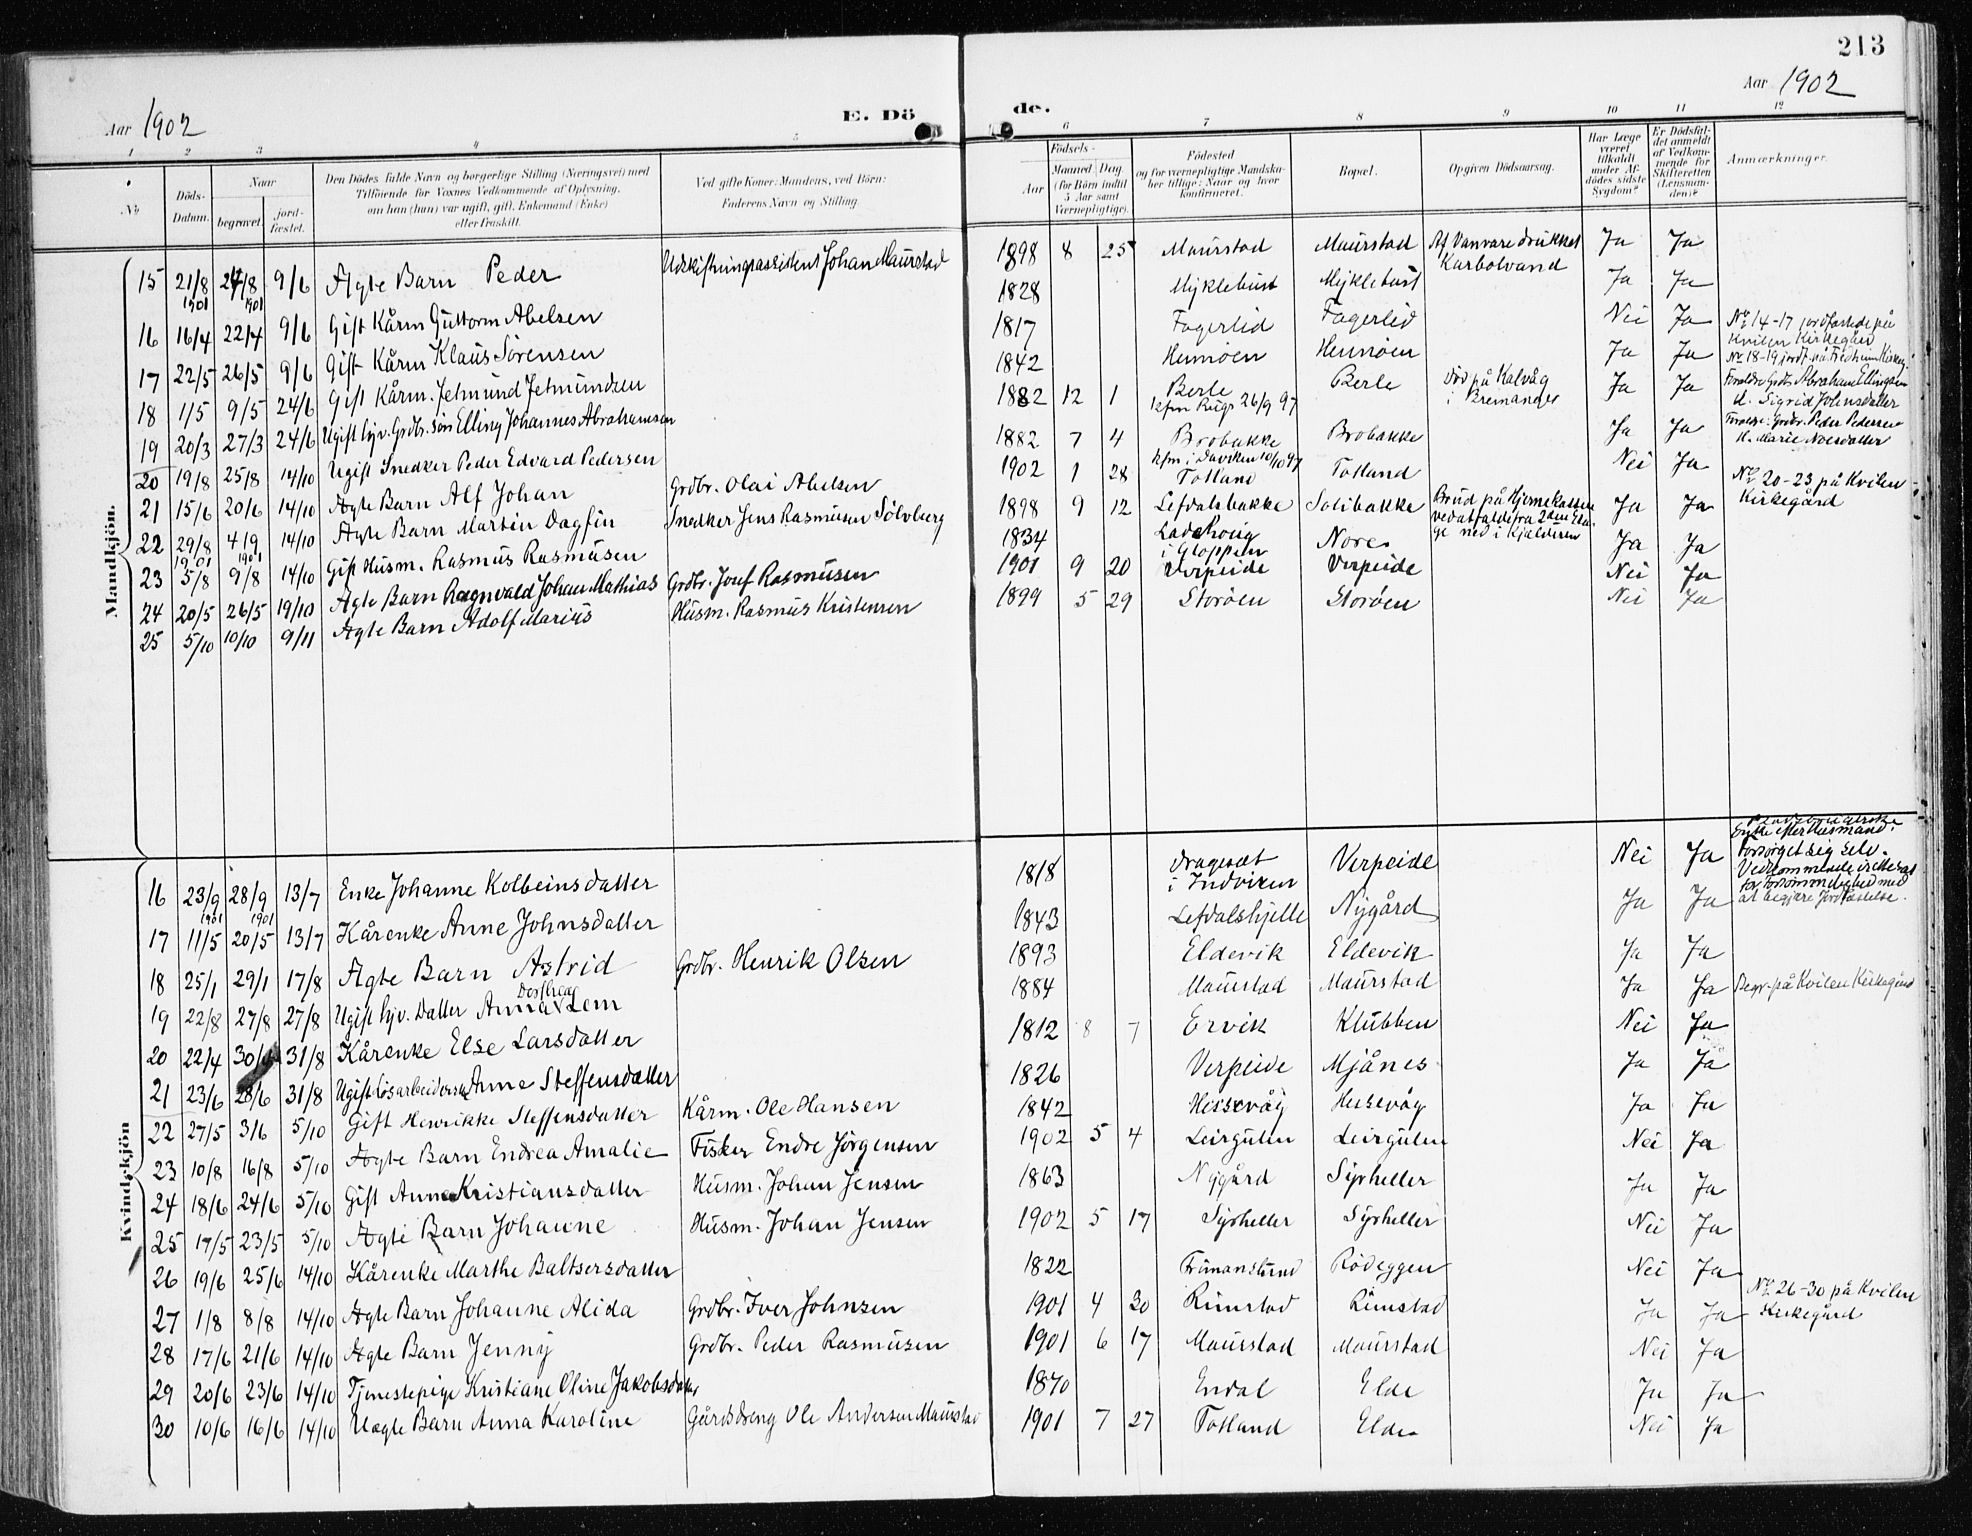 213
Aar 1902 E. Dö
de. Aar 1902
1 2 3 4 5
6 7 8 9 10 11 12
No. Döds-Datum. Naar begravet. jord-fæstet. Den Dödes fulde Navn og borgerlige Stilling (Næringsvei) med Tilföiende for Voxnes Vedkommende af Oplysning, om han (hun) var ugift, gift, Enkemand (Enke) eller fraskilt. Ved gifte Koner: Mandens, ved Börn: Faderens Navn og Stilling.
Födsels- Aar Maaned. Dag. (for Börn indtil 5 Aar samt Værnepligtige). Födested og for værnepligtige Mandska-ber tillige: Naar og hvor konfirmeret. Bopæl. Opgiven Dödsaarsag. Har Læge været tilkaldt under Af-dödes sidste Sygdom? Er Dödsfal-det anmeldt af Vedkom-mende for Skifteretten (Lensman-den)? Anmærkninger.
Mandkjön.
15 21/8 1901 24/8 1901 9/6 Ægte Barn Peder Udskiftningsassistent Johan Maurstad 1898 8 25 Maurstad Maurstad Af Vanvare drukket Karbolvand Ja Ja
16 16/4 22/4 9/6 Gift Kårm Guttorm Abelsen 1828 Myklebust Myklebust Ja Ja
17 22/5 26/5 9/6 Gift Kårm Klaus Sørensen 1817 Fagerlid Fagerlid Nei Ja No. 14-17 jordfæstede på Kvilen Kirkegård
18 1/5 9/5 24/6 Gift Kårm. Jetmund Jetmundsen 1842 Hennøen Hennøen Ja Ja No. 18-19 jordf. på
19 20/3 27/3 24/6 Ugift hjv. Grdbr. søn Elling Johannes Abrahamsen 1882 12 1 Berle kfm Rugs 26/9 97 Berle Død på Kalvåg i Bremanger Ja Ja Forældre Grdbr. Abraham Ellingsen o. Sigrid Johnsdatter
20 19/8 25/8 14/10 Ugift Snedker Peder Edvard Pedersen 1882 7 4 Brobakke kfm i Daviken 10/10 97 Brobakke Ja Ja Forældre: Grdbr. Peder Pedersen o. Marie
21 15/6 20/6 14/10 Ægte Barn Alf Johan Grdbr. Olai Abelsen 1902 1 28 Totland Totland Nei Ja No. 20-23 på Kvilen Kirkegård
22 29/8 1901 4/9 1901 14/10 Ægte Barn Martin Dagfin Snedker Jens Rasmusen Sølvberg 1898 9 12 Lefdalsbakke Solibakke Brud på Hjernekassen ved at falde fra 2den Eta-ge ned i Kjælderen Ja Ja
23 5/8 9/8 14/10 Gift Husm. Rasmus Rasmusen 1834 i Gloppen Nore Ja Ja
24 20/5 26/5 19/10 Ægte Barn Ragnvald Johan Mathias Grdbr. Josef Rasmusen 1901 9 20 Verpeide Verpeide Nei Ja
25 5/10 10/10 9/11 Ægte Barn Adolf Marius Husm. Rasmus Kristensen 1899 5 29 Storøen Storøen Nei Ja
Kvindekjön
16 23/9 1901 28/9 1901 13/7 Enke Johanne Kolbeinsdatter 1818 Dragesæt i Indviken Verpeide Nei Ja Enke efter Husmand. Forsørget sig selv. Vedkommende irettesat for Forsømmelighed med at begjere Jordfæstelse.
17 11/5 20/5 13/7 Kårenke Anne Johnsdatter 1843 Lefdalshjelle Nygård Ja Ja
18 25/1 29/1 17/8 Ægte Barn Astrid Grdbr. Henrik Olsen 1893 Eldevik Eldevik Ja Ja
19 22/8 27/8 27/8 Ugift hjv. Datter Anna Dorthea Lem 1884 Maurstad Maurstad Ja Ja Begr. på Kvilen Kirkegård
20 22/4 30/4 31/8 Kårenke Else Larsdatter 1812 8 7 Ervik Klubben Nei Ja
21 23/6 28/6 31/8 Ugift Løsarbeiderske Anne Steffensdatter 1826 Verpeide Mjånes Ja Ja
22 27/5 3/6 5/10 Gift Henrikke Steffensdatter Kårm. Ole Hansen 1842 Hessevåg Hessevåg Ja Ja
23 10/8 16/8 5/10 Ægte Barn Endrea Amalie Fisker Endre Jørgensen 1902 5 4 Leirgulen Leirgulen Nei Ja
24 18/6 24/6 5/10 Gift Anne Kristiansdatter Husm. Johan Jensen 1863 Nygård Syrheller Ja Ja
25 17/5 23/5 5/10 Ægte Barn Johanne Husm. Johan Jensen 1902 5 17 Syrheller Syrheller Nei Ja
26 19/6 25/6 14/10 Kårenke Marthe Baltsersdatter 1822 Frimanslund Rødeggen Nei Ja No. 26-30 på Kvilen Kirkegård
27 1/8 8/8 14/10 Ægte Barn Johanne Alida Grdbr. Iver Johnsen 1901 4 30 Rimstad Rimstad Ja Ja
28 17/6 21/6 14/10 Ægte Barn Jenny Grdbr. Peder Rasmusen 1901 6 17 Maurstad Maurstad Nei Ja
29 20/6 23/6 14/10 Tjenestepige Kristiane Oline Jakobsdatter 1870 Endal Elde Ja Ja
30 10/6 16/6 14/10 Uægte Barn Anna Karoline Gårdsdreng Ole Andersen Maurstad 1901 7 27 Totland Elde Nei Ja